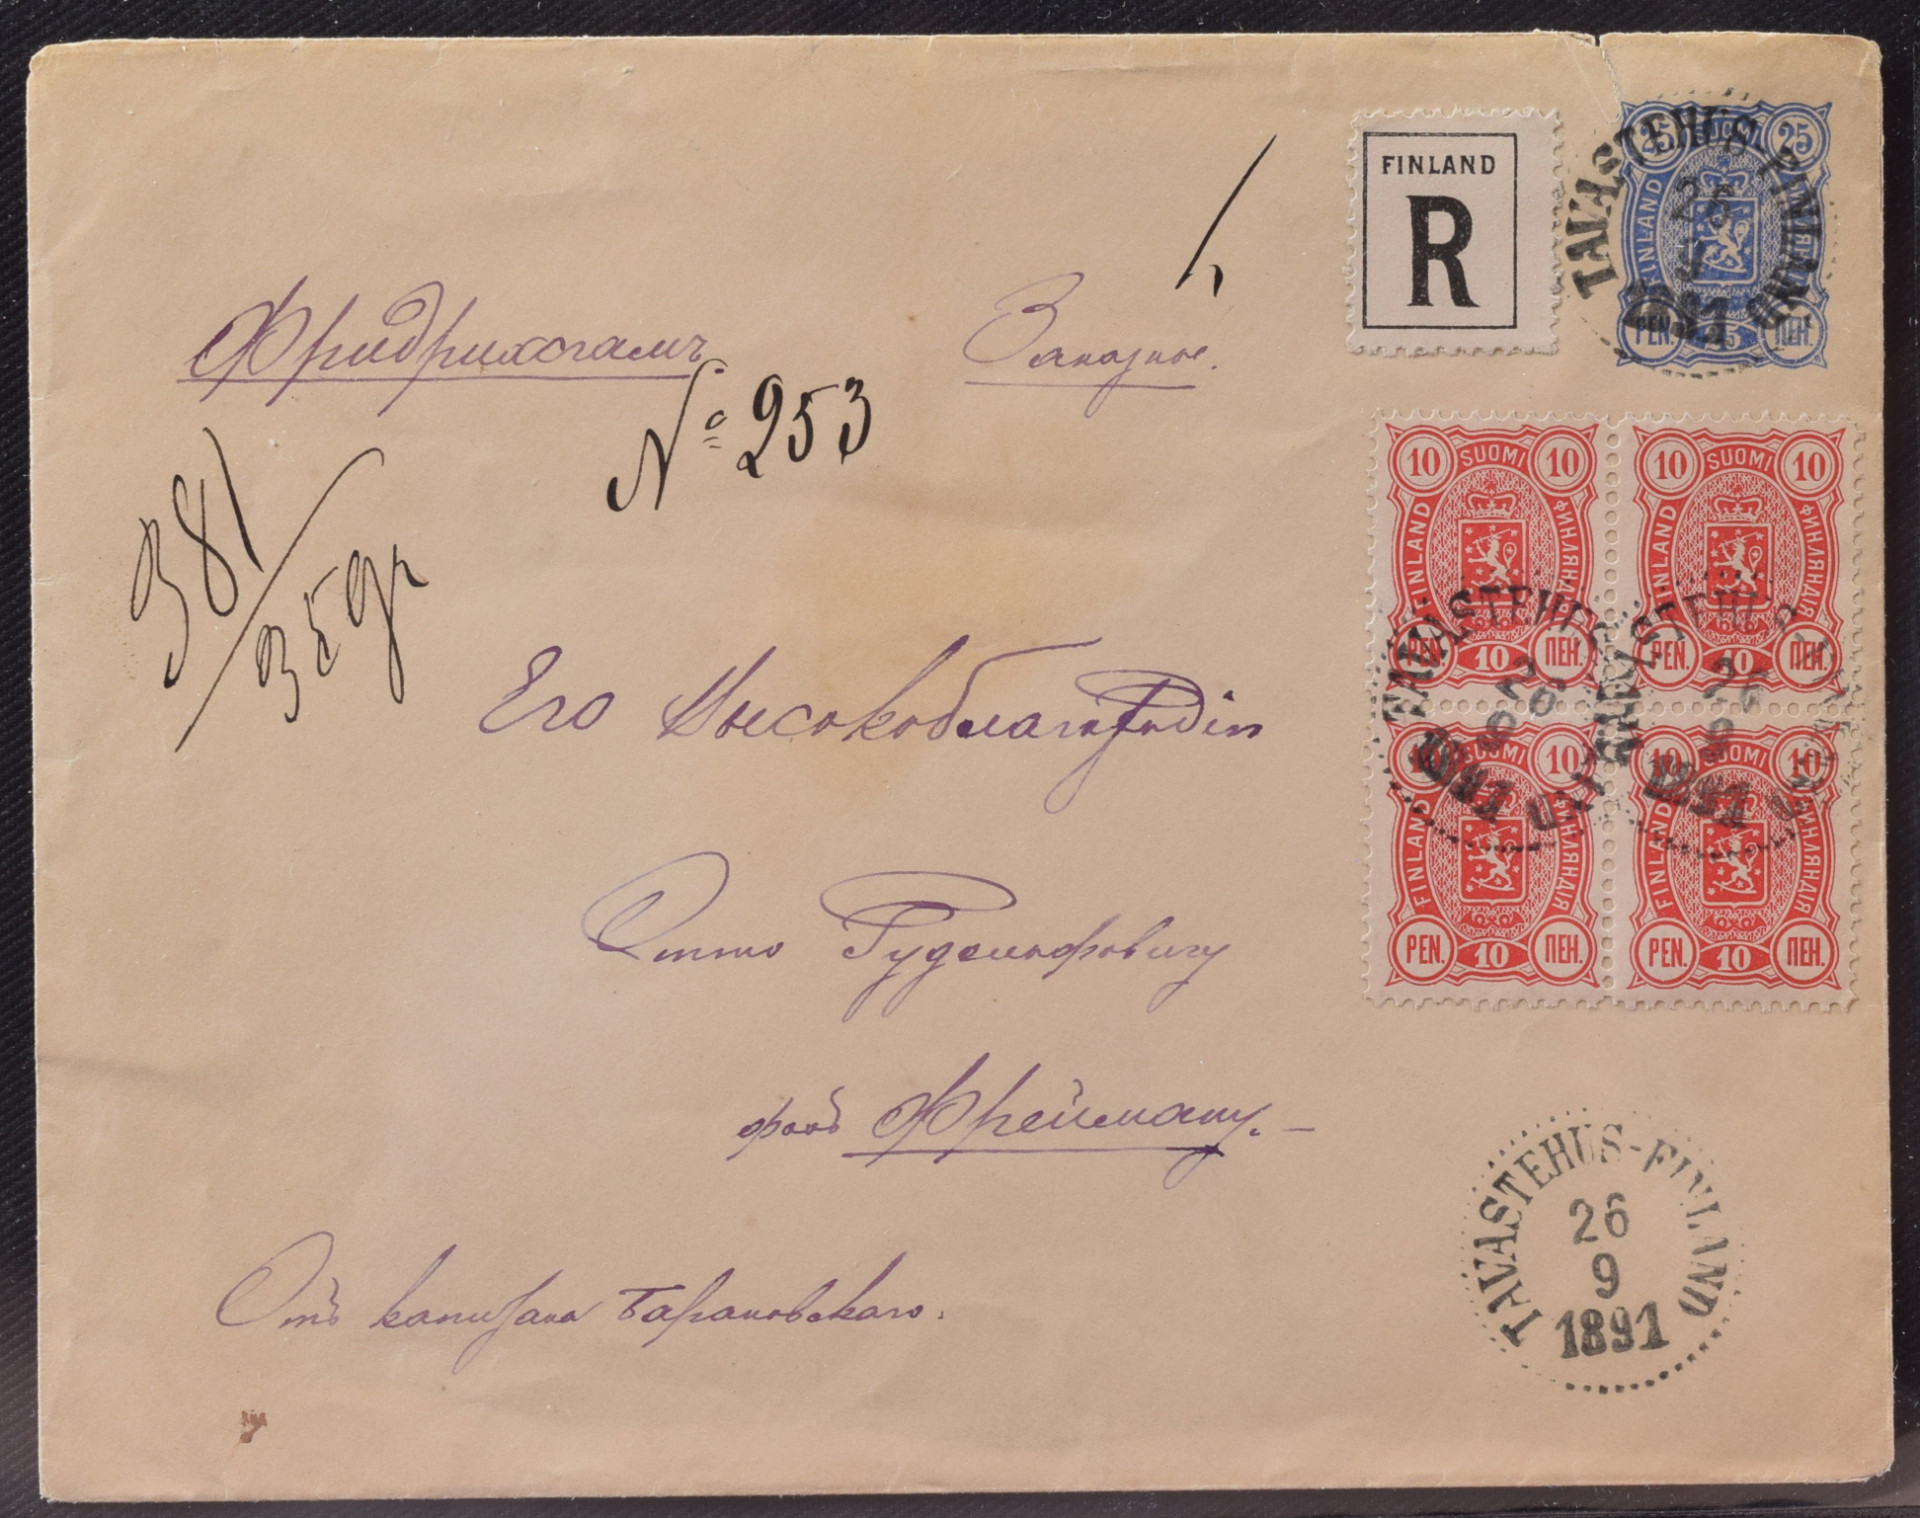 FINLAND
R
TAVASTEHUS-FINLAND
26
9
1891
25 SUOMI 25
FINLAND
PEN. 25 ПЕН.
Фридрихсгамъ. Заказное.
№ 253
381/35 gr
10 SUOMI 10 10 SUOMI 10
FINLAND ФИНЛЯНДІЯ FINLAND ФИНЛЯНДІЯ
PEN. 10 ПЕН. PEN. 10 ПЕН.
TAVASTEHUS-FINLAND
26
9
1891
TAVASTEHUS-FINLAND
26
9
1891
10 SUOMI 10 10 SUOMI 10
FINLAND ФИНЛЯНДІЯ FINLAND ФИНЛЯНДІЯ
PEN. 10 ПЕН. PEN. 10 ПЕН.
Его
Отто Рудольфовичу
фонъ Фрейману. –
Отъ капитана Барановскаго.
TAVASTEHUS-FINLAND
26
9
1891